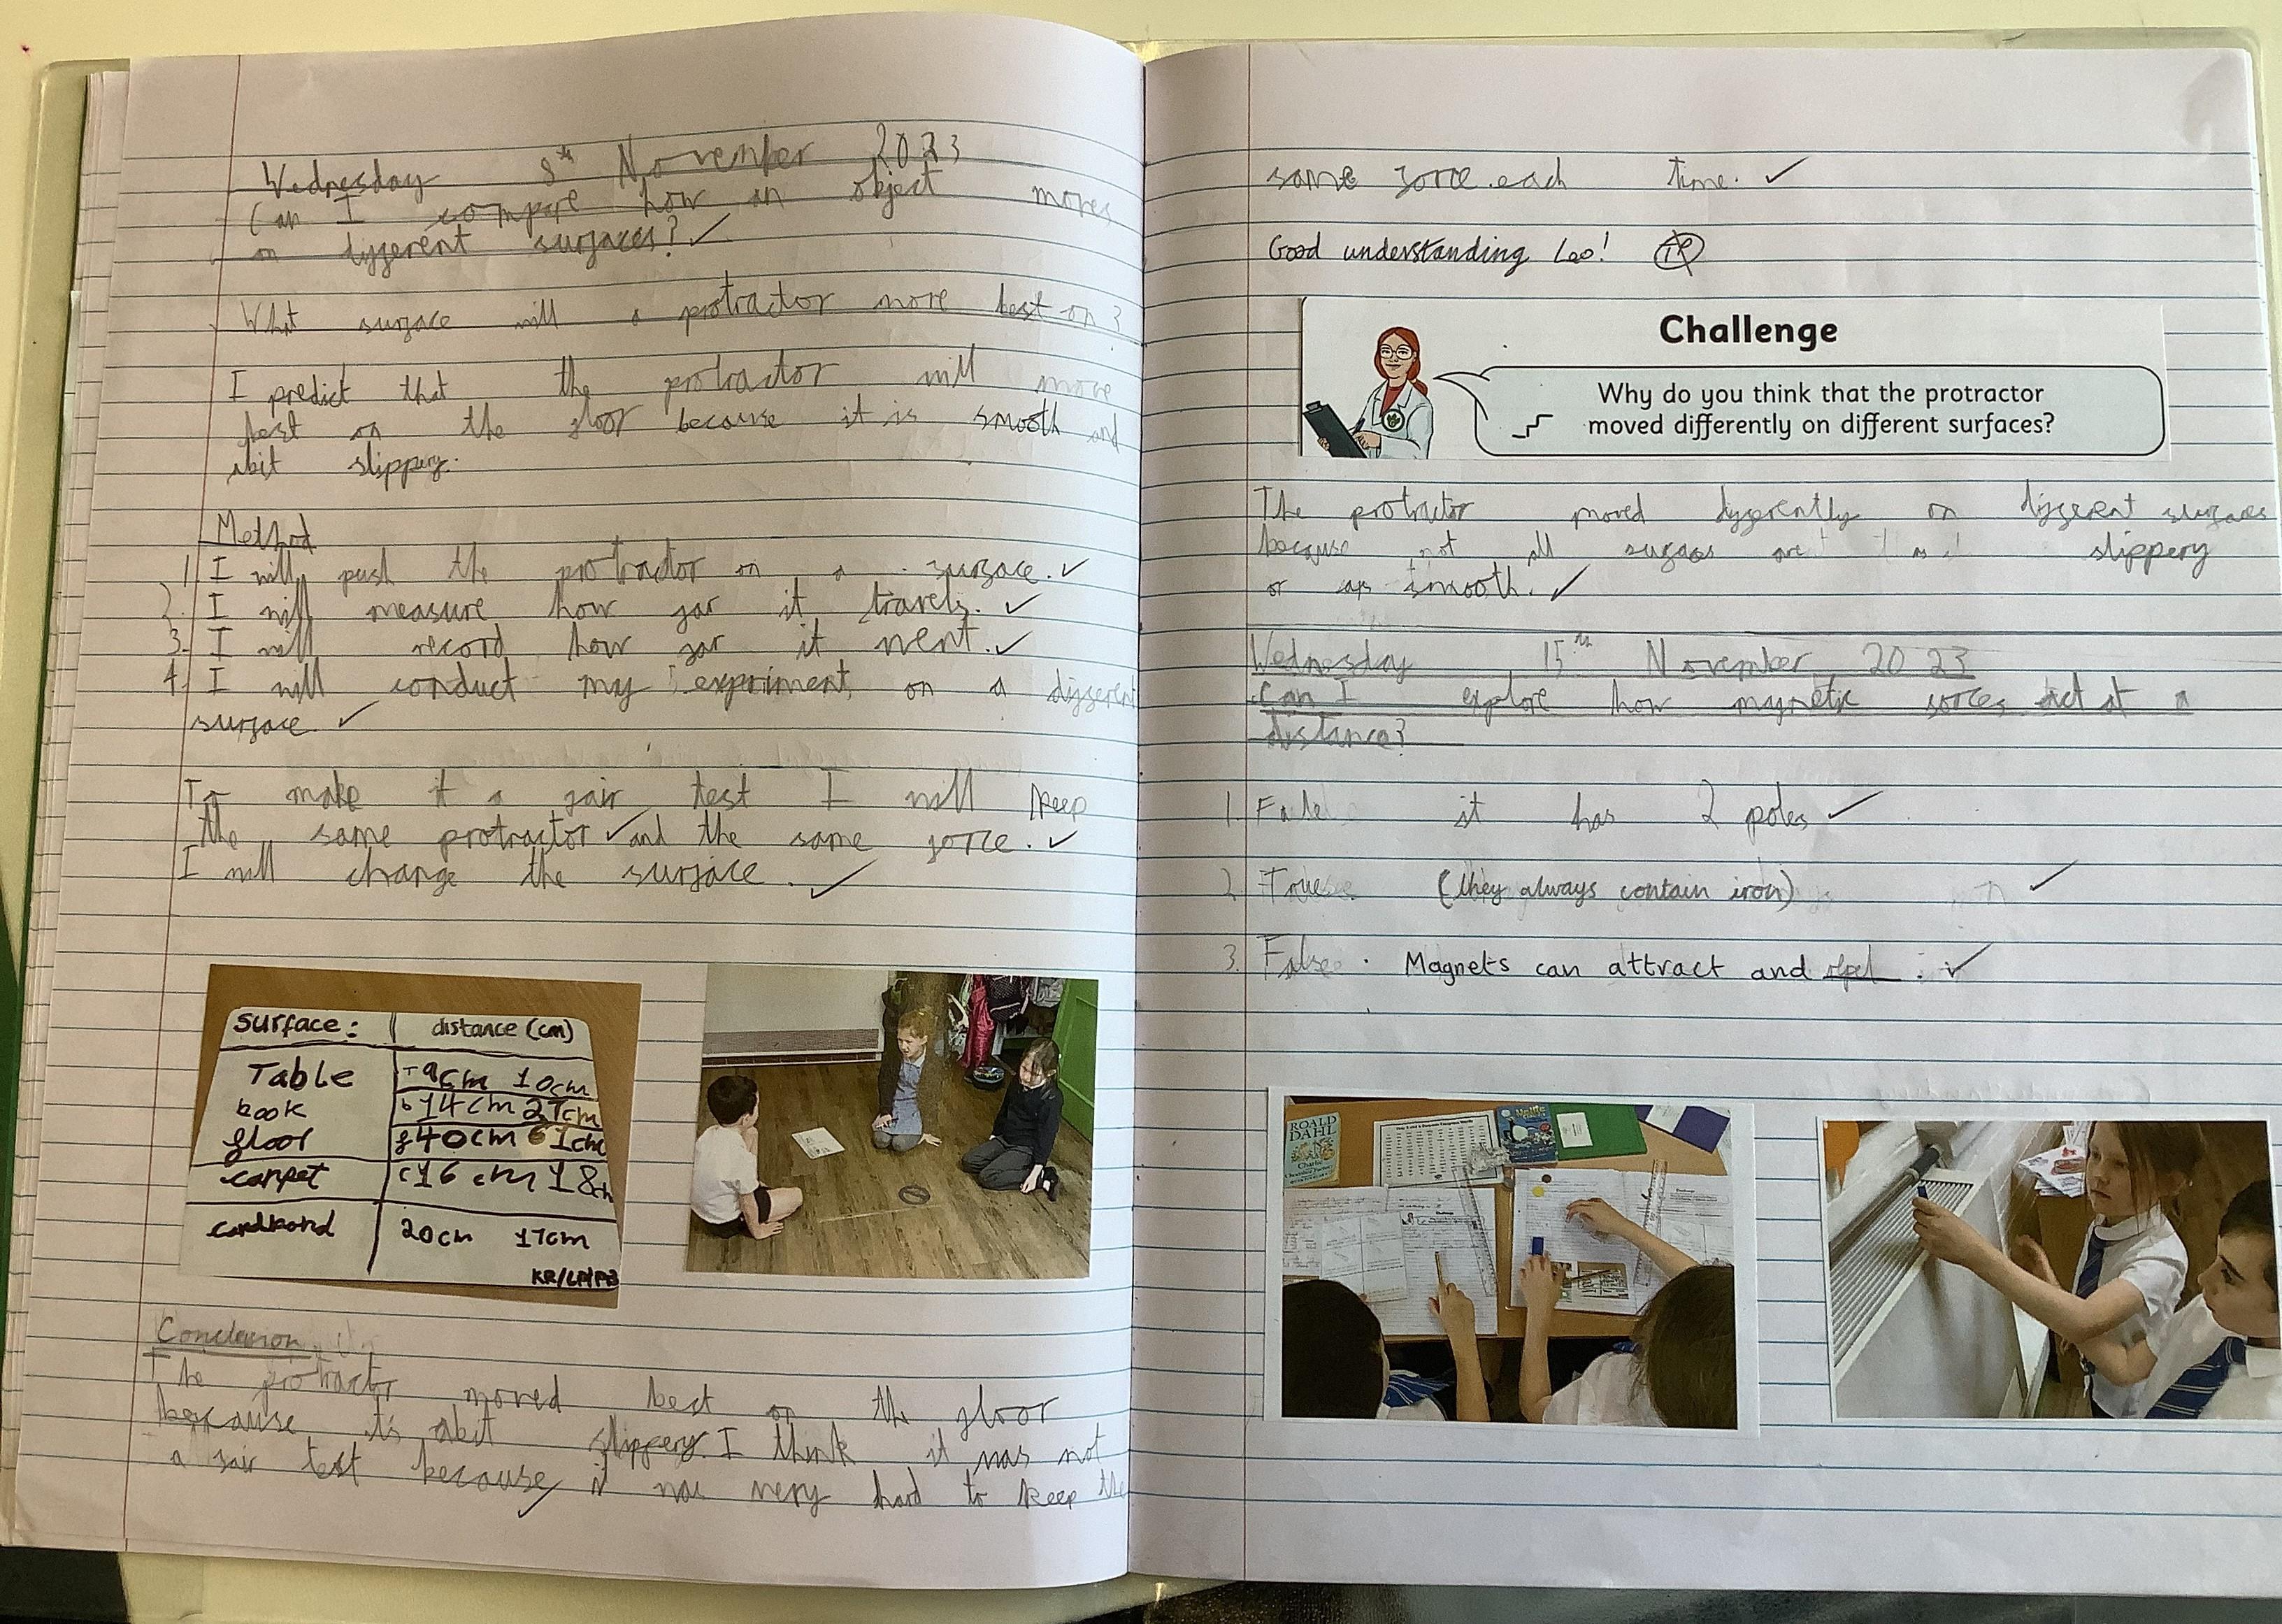 Wednesday 8th November 2023
Can I compare how an object moves
on different surfaces?
What surface will a protractor move best on?
I predict that the protractor will move
best on the floor because it is smooth and
abit slippery.
Method
1. I will push the protractor on a surface.
2. I will measure how far it travels.
3. I will record how far it went.
4. I will conduct my expriment on a different
surface.
To make it a fair test I will keep
the same protractor and the same force.
I will change the surface.
surface: distance (cm)
Table T 9cm 10cm
book b 14cm 27cm
floor f 40cm 61cm
carpet c 16cm 18cm
cardbord 20cm 17cm
KR/LP/PB
Conclusion
The protractor moved best on the floor
because it's abit slippery. I think it was not
a fair test because it was very hard to keep the
same force each time.
Good understanding Leo!
Challenge
Why do you think that the protractor
moved differently on different surfaces?
The protractor moved differently on different surfaces
because not all surfaces are slippery
or smooth.
Wednesday 15th November 2023
Can I explore how magnetic forces act at a
distance?
1. False it has 2 poles
2. True (they always contain iron)
3. False. Magnets can attract and repel
ROALD
DAHL
Charlie